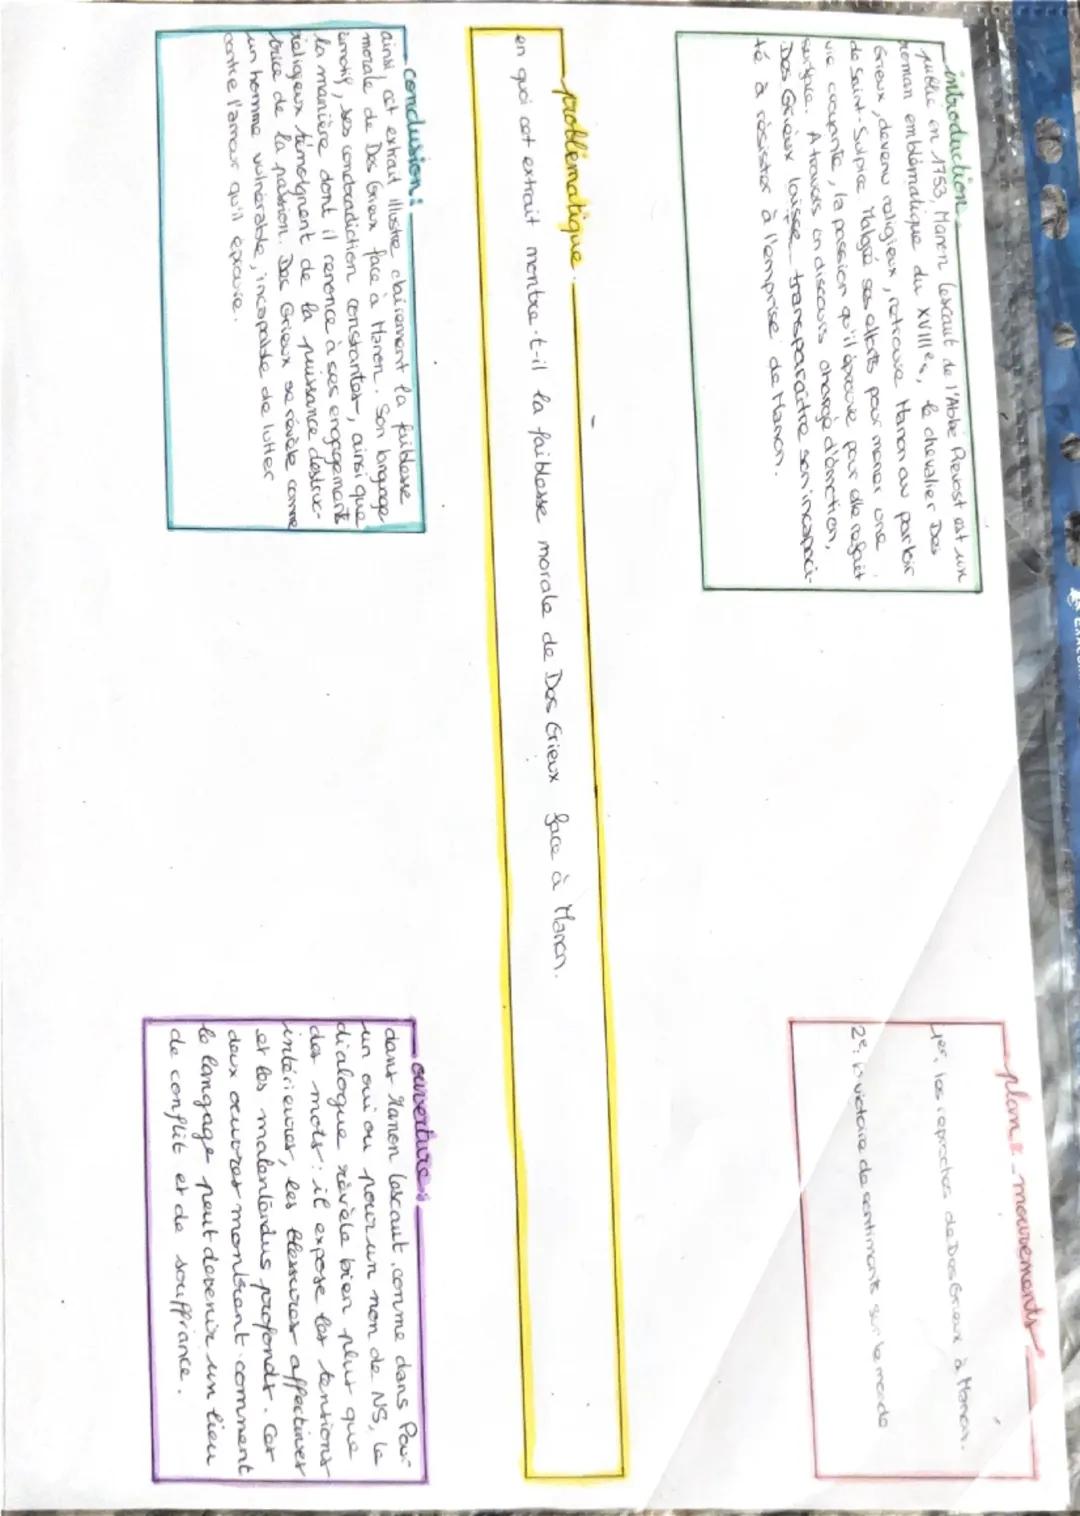 introduction
publié en 1753, Manon Lescaut de l'Abbé Prevost est un
roman emblématique du XVIIIe s, le chevalier Des
Grieux, devenu religieux, retrouve Manon au parloir
de Saint-Sulpice. Malgré ses efforts pour mener une
vie croyante, la passion qu'il éprouve pour elle refait
surface. A travers un discours chargé d'émotion,
Des Grieux laisse transparaître son incapaci-
té à résister à l'emprise de Manon.
plan : mouvements
1er, les reproches de Des Grieux à Manon.
2e, la victoire de sentiments sur le monde
problématique :
en quoi cet extrait montre-t-il la faiblesse morale de Des Grieux face à Manon.
conclusion :
ainsi, cet extrait illustre clairement la faiblesse
morale de Des Grieux face à Manon. Son langage
émotif, ses contradiction constantes, ainsi que
la manière dont il renonce à ses engagements
religieux témoignent de la puissance destruc-
trice de la passion. Des Grieux se révèle comme
un homme vulnérable, incapable de lutter
contre l'amour qu'il éprouve.
ouverture :
dans Manon Lescaut, comme dans Pour
un oui ou pour un non de NS, le
dialogue révèle bien plus que
des mots : il expose les tensions
intérieures, les blessures affectives
et les malentendus profonds. Car
deux œuvres montrent comment
le langage peut devenir un lieu
de conflit et de souffrance.